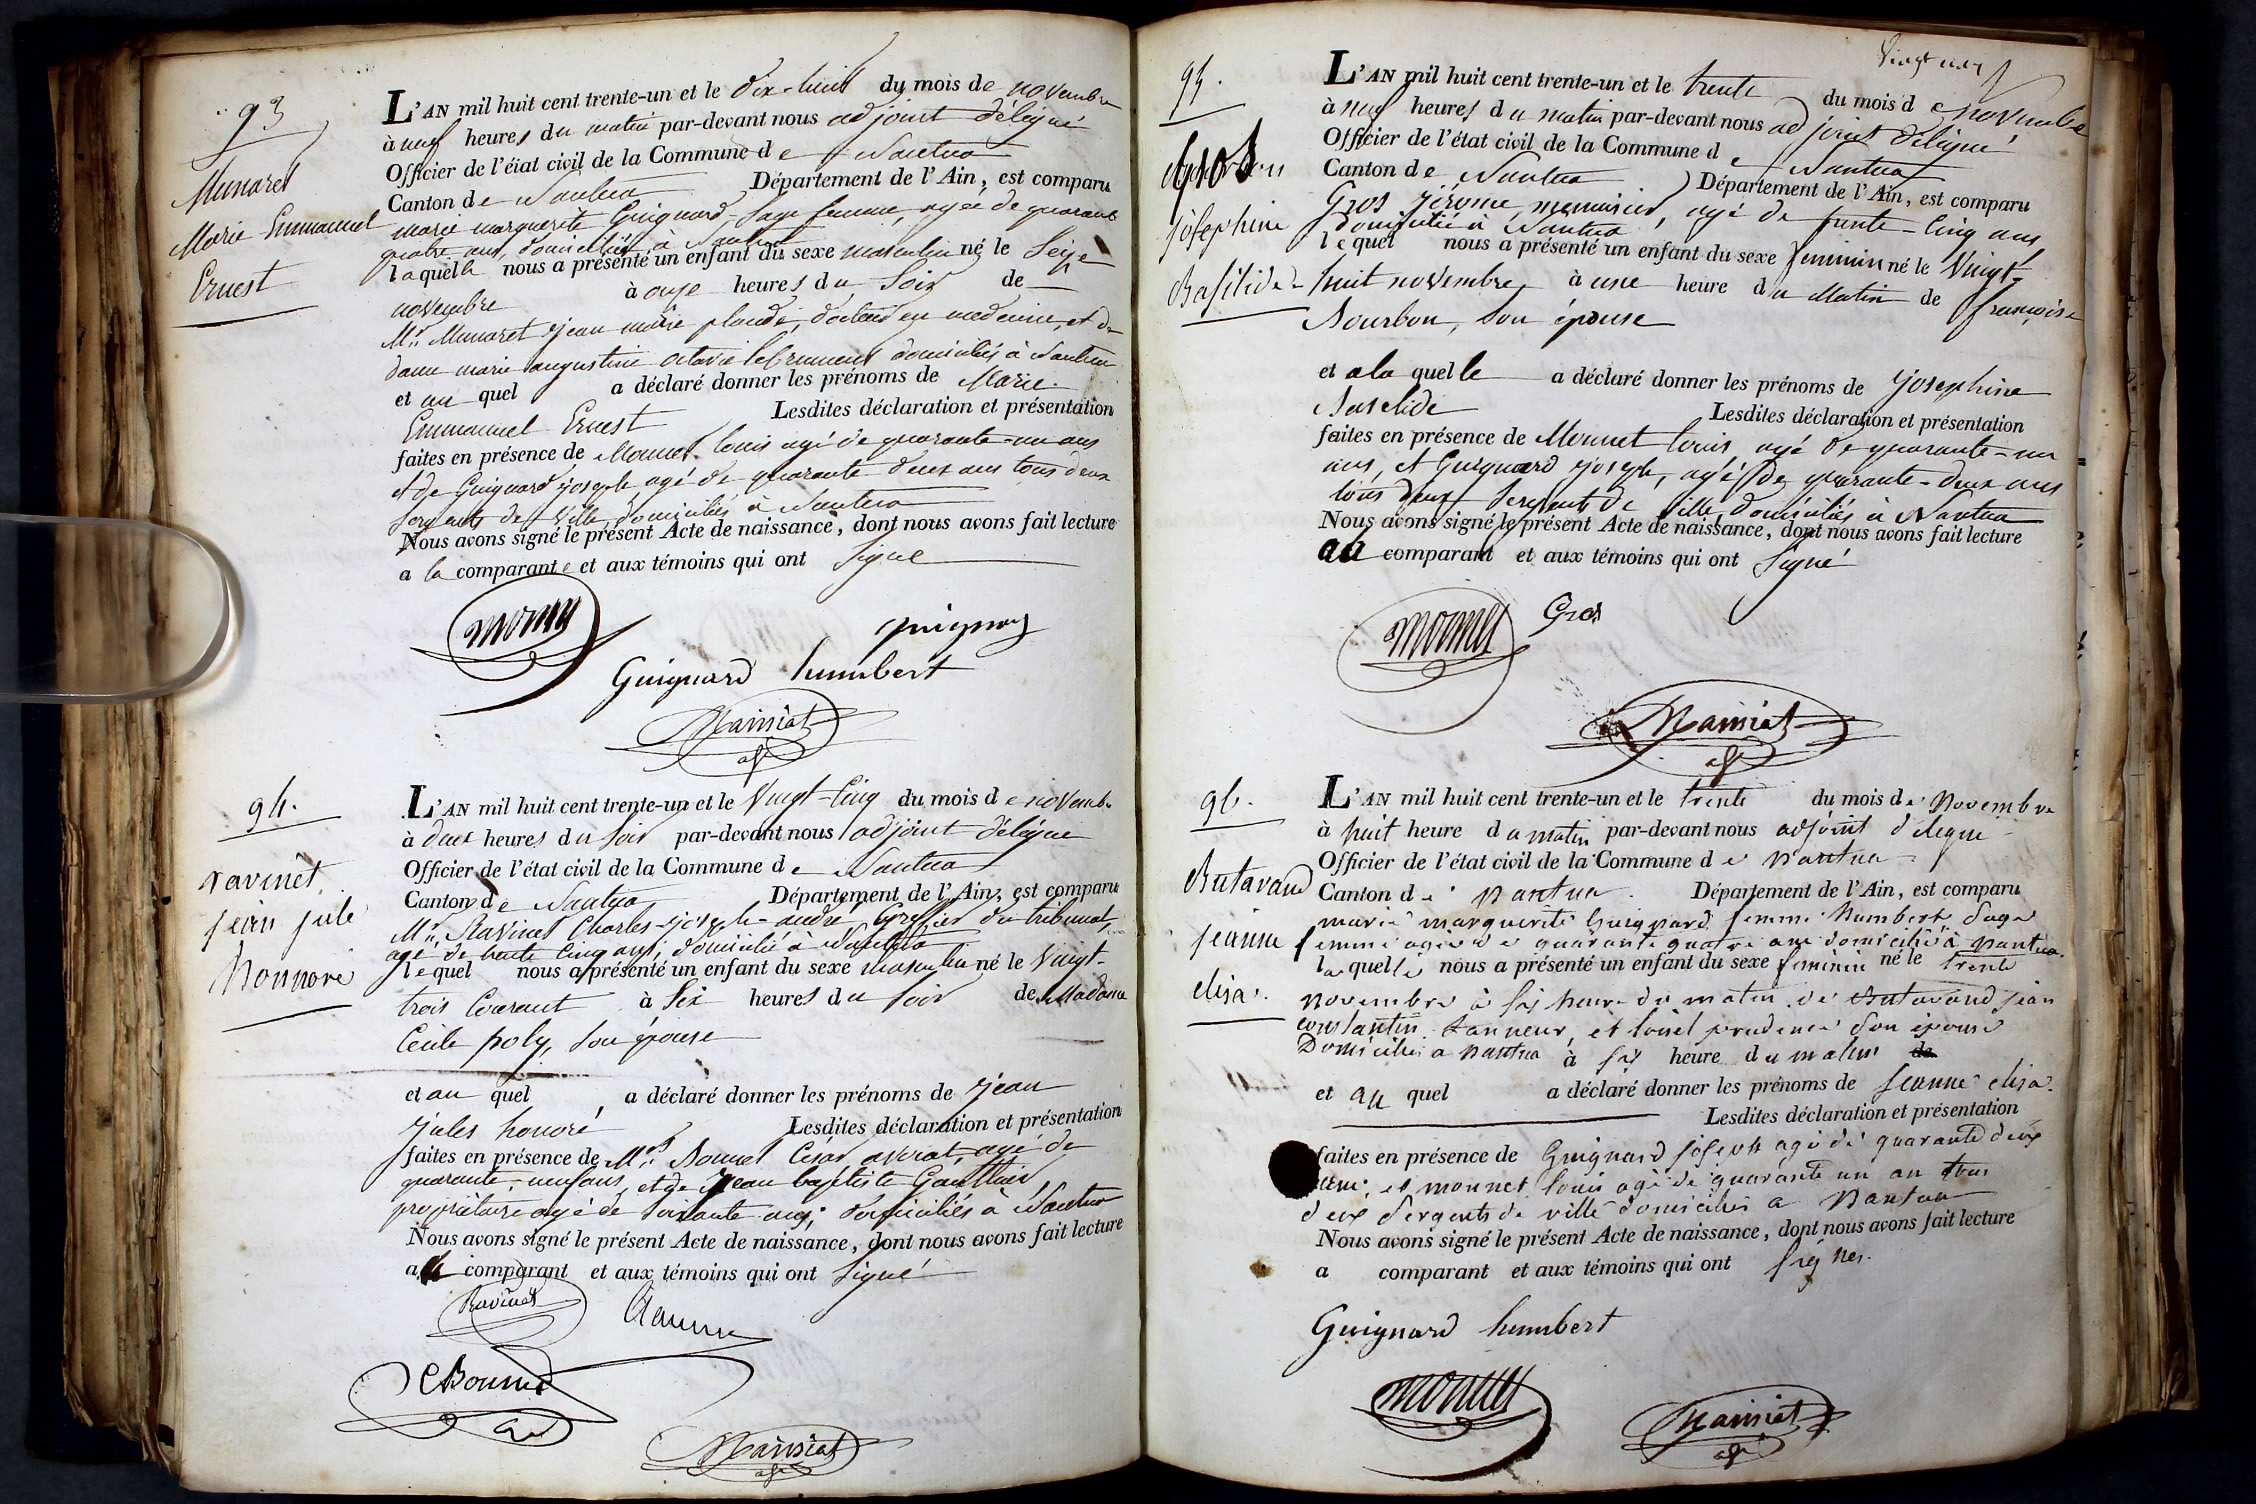 93
Munaret
Marie Emmanuel
Ernest
L'AN mil huit cent trente-un et le dix-huit du mois de novembre
à neuf heures du matin par-devant nous adjoint délégué
Officier de l'état civil de la Commune de Nantua
Canton de Nantua Département de l'Ain, est comparu
marie marguerite Guignard, Sage femme, agée de quarante
quatre ans, domiciliée à Nantua
laquelle nous a présenté un enfant du sexe masculin né le Seize
novembre à onze heures du Soir de
Mr. Munaret jean marie placide, docteur en medecine, et de
dame marie augustine octavie domiciliés à Nantua
et au quel a déclaré donner les prénoms de Marie
Emmanuel Ernest Lesdites déclaration et présentation
faites en présence de Monnet louis agé de quarante-un ans
et de Guignard joseph agé de quarante deux ans tous deux
Sergents de Ville, domiciliés à Nantua
Nous avons signé le présent Acte de naissance, dont nous avons fait lecture
a la comparante et aux témoins qui ont Signé
monnet
guignard
Guignard humbert
Mainiat
94.
ravinet
jean jule
honnore
L'AN mil huit cent trente-un et le Vingt-Cinq du mois de novembre
à deux heures du Soir par-devant nous adjoint délégué
Officier de l'état civil de la Commune de Nantua
Canton de Nantua Département de l'Ain, est comparu
Mr. Ravinet Charles-joseph-andré, Greffier du tribunal,
agé de trente Cinq ans, domicilié à Nantua
lequel nous a présenté un enfant du sexe masculin né le Vingt-
trois Courant à Six heures du Soir de Madame
Cécile poly, Son épouse
et au quel a déclaré donner les prénoms de jean
jules honoré Lesdites déclaration et présentation
faites en présence de Mrs. Bonnet César avocat, agé de
quarante-un ans, et de jean baptiste Gauthier,
propriétaire agé de Soixante ans, domiciliés à Nantua
Nous avons signé le présent Acte de naissance, dont nous avons fait lecture
au comparant et aux témoins qui ont Signé
Ravinet
CBonnet
Mainiat
95.
Gros
joséphine
Basilide
L'AN mil huit cent trente-un et le trente du mois de novembre
à neuf heures du matin par-devant nous adjoint délégué
Officier de l'état civil de la Commune de Nantua
Canton de Nantua Département de l'Ain, est comparu
Gros jérome, menuisier, agé de trente-Cinq ans,
domicilié à Nantua
lequel nous a présenté un enfant du sexe feminin né le Vingt-
huit novembre, à une heure du Matin de françoise
Bourbon, Son épouse
et a la quelle a déclaré donner les prénoms de josephine
Baselide Lesdites déclaration et présentation
faites en présence de Monnet louis, agé de quarante-un
ans, et Guignard joseph, agé de quarante-deux ans
tous deux Sergents de Ville, domiciliés à Nantua
Nous avons signé le présent Acte de naissance, dont nous avons fait lecture
au comparant et aux témoins qui ont Signé
monnet Gros
Mainiat
96.
Butavand
jeanne
elisa.
L'AN mil huit cent trente-un et le trente du mois de Novembre
à huit heure du matin par-devant nous adjoint delegue
Officier de l'état civil de la Commune de nantua
Canton de nantua. Département de l'Ain, est comparu
marie marguerite Guignard femme humbert Sage
femme agée de quarante quatre ans domiciliè à nantua.
la quelle nous a présenté un enfant du sexe feminin né le trente
novembre à Six heure du matin de Butavand jean
constantin tanneur, et loisel prudence Son épouse
Domiciliés a nantua à Six heure du matin de
et au quel a déclaré donner les prénoms de jeanne elisa.
Lesdites déclaration et présentation
faites en présence de Guignard joseph agé de quarante deux
ans, et monnet louis agé de quarante un an tous
deux Sergents de ville domiciliés a nantua
Nous avons signé le présent Acte de naissance, dont nous avons fait lecture
a comparant et aux témoins qui ont Signes.
Guignard humbert
monnet
Mainiat